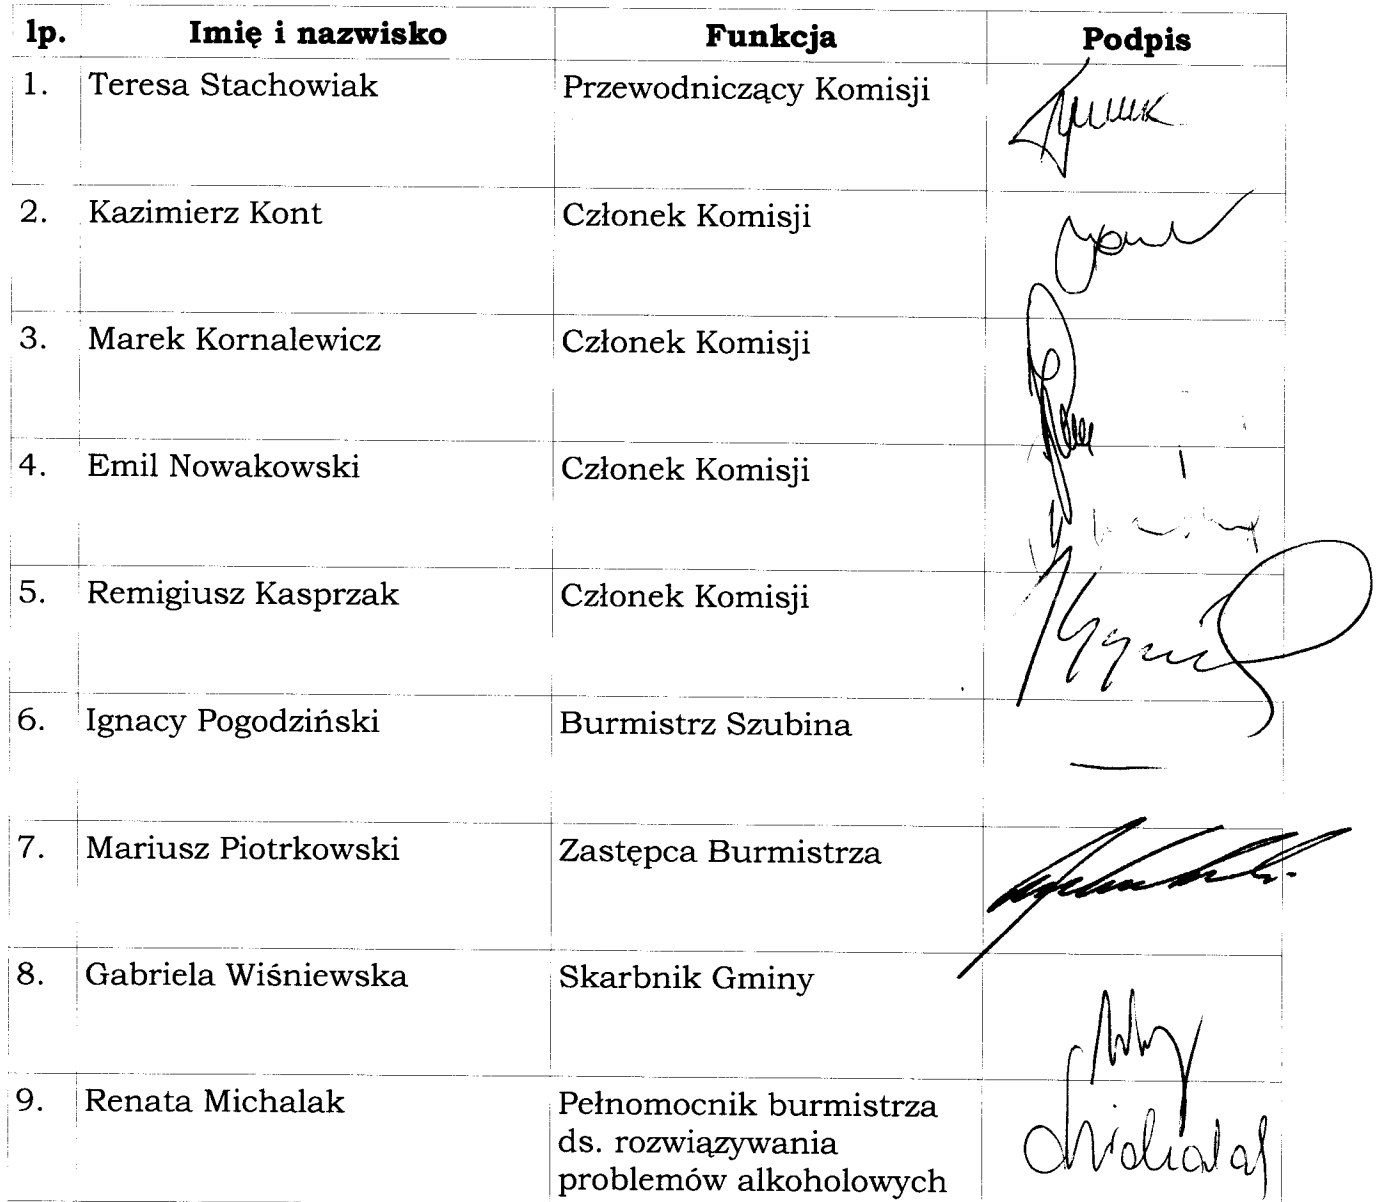 lp. Imię i nazwisko Funkcja Podpis
1. Teresa Stachowiak Przewodniczący Komisji
2. Kazimierz Kont Członek Komisji
3. Marek Kornalewicz Członek Komisji
4. Emil Nowakowski Członek Komisji
5. Remigiusz Kasprzak Członek Komisji
6. Ignacy Pogodziński Burmistrz Szubina
—
7. Mariusz Piotrkowski Zastępca Burmistrza
8. Gabriela Wiśniewska Skarbnik Gminy
9. Renata Michalak Pełnomocnik burmistrza
ds. rozwiązywania
problemów alkoholowych